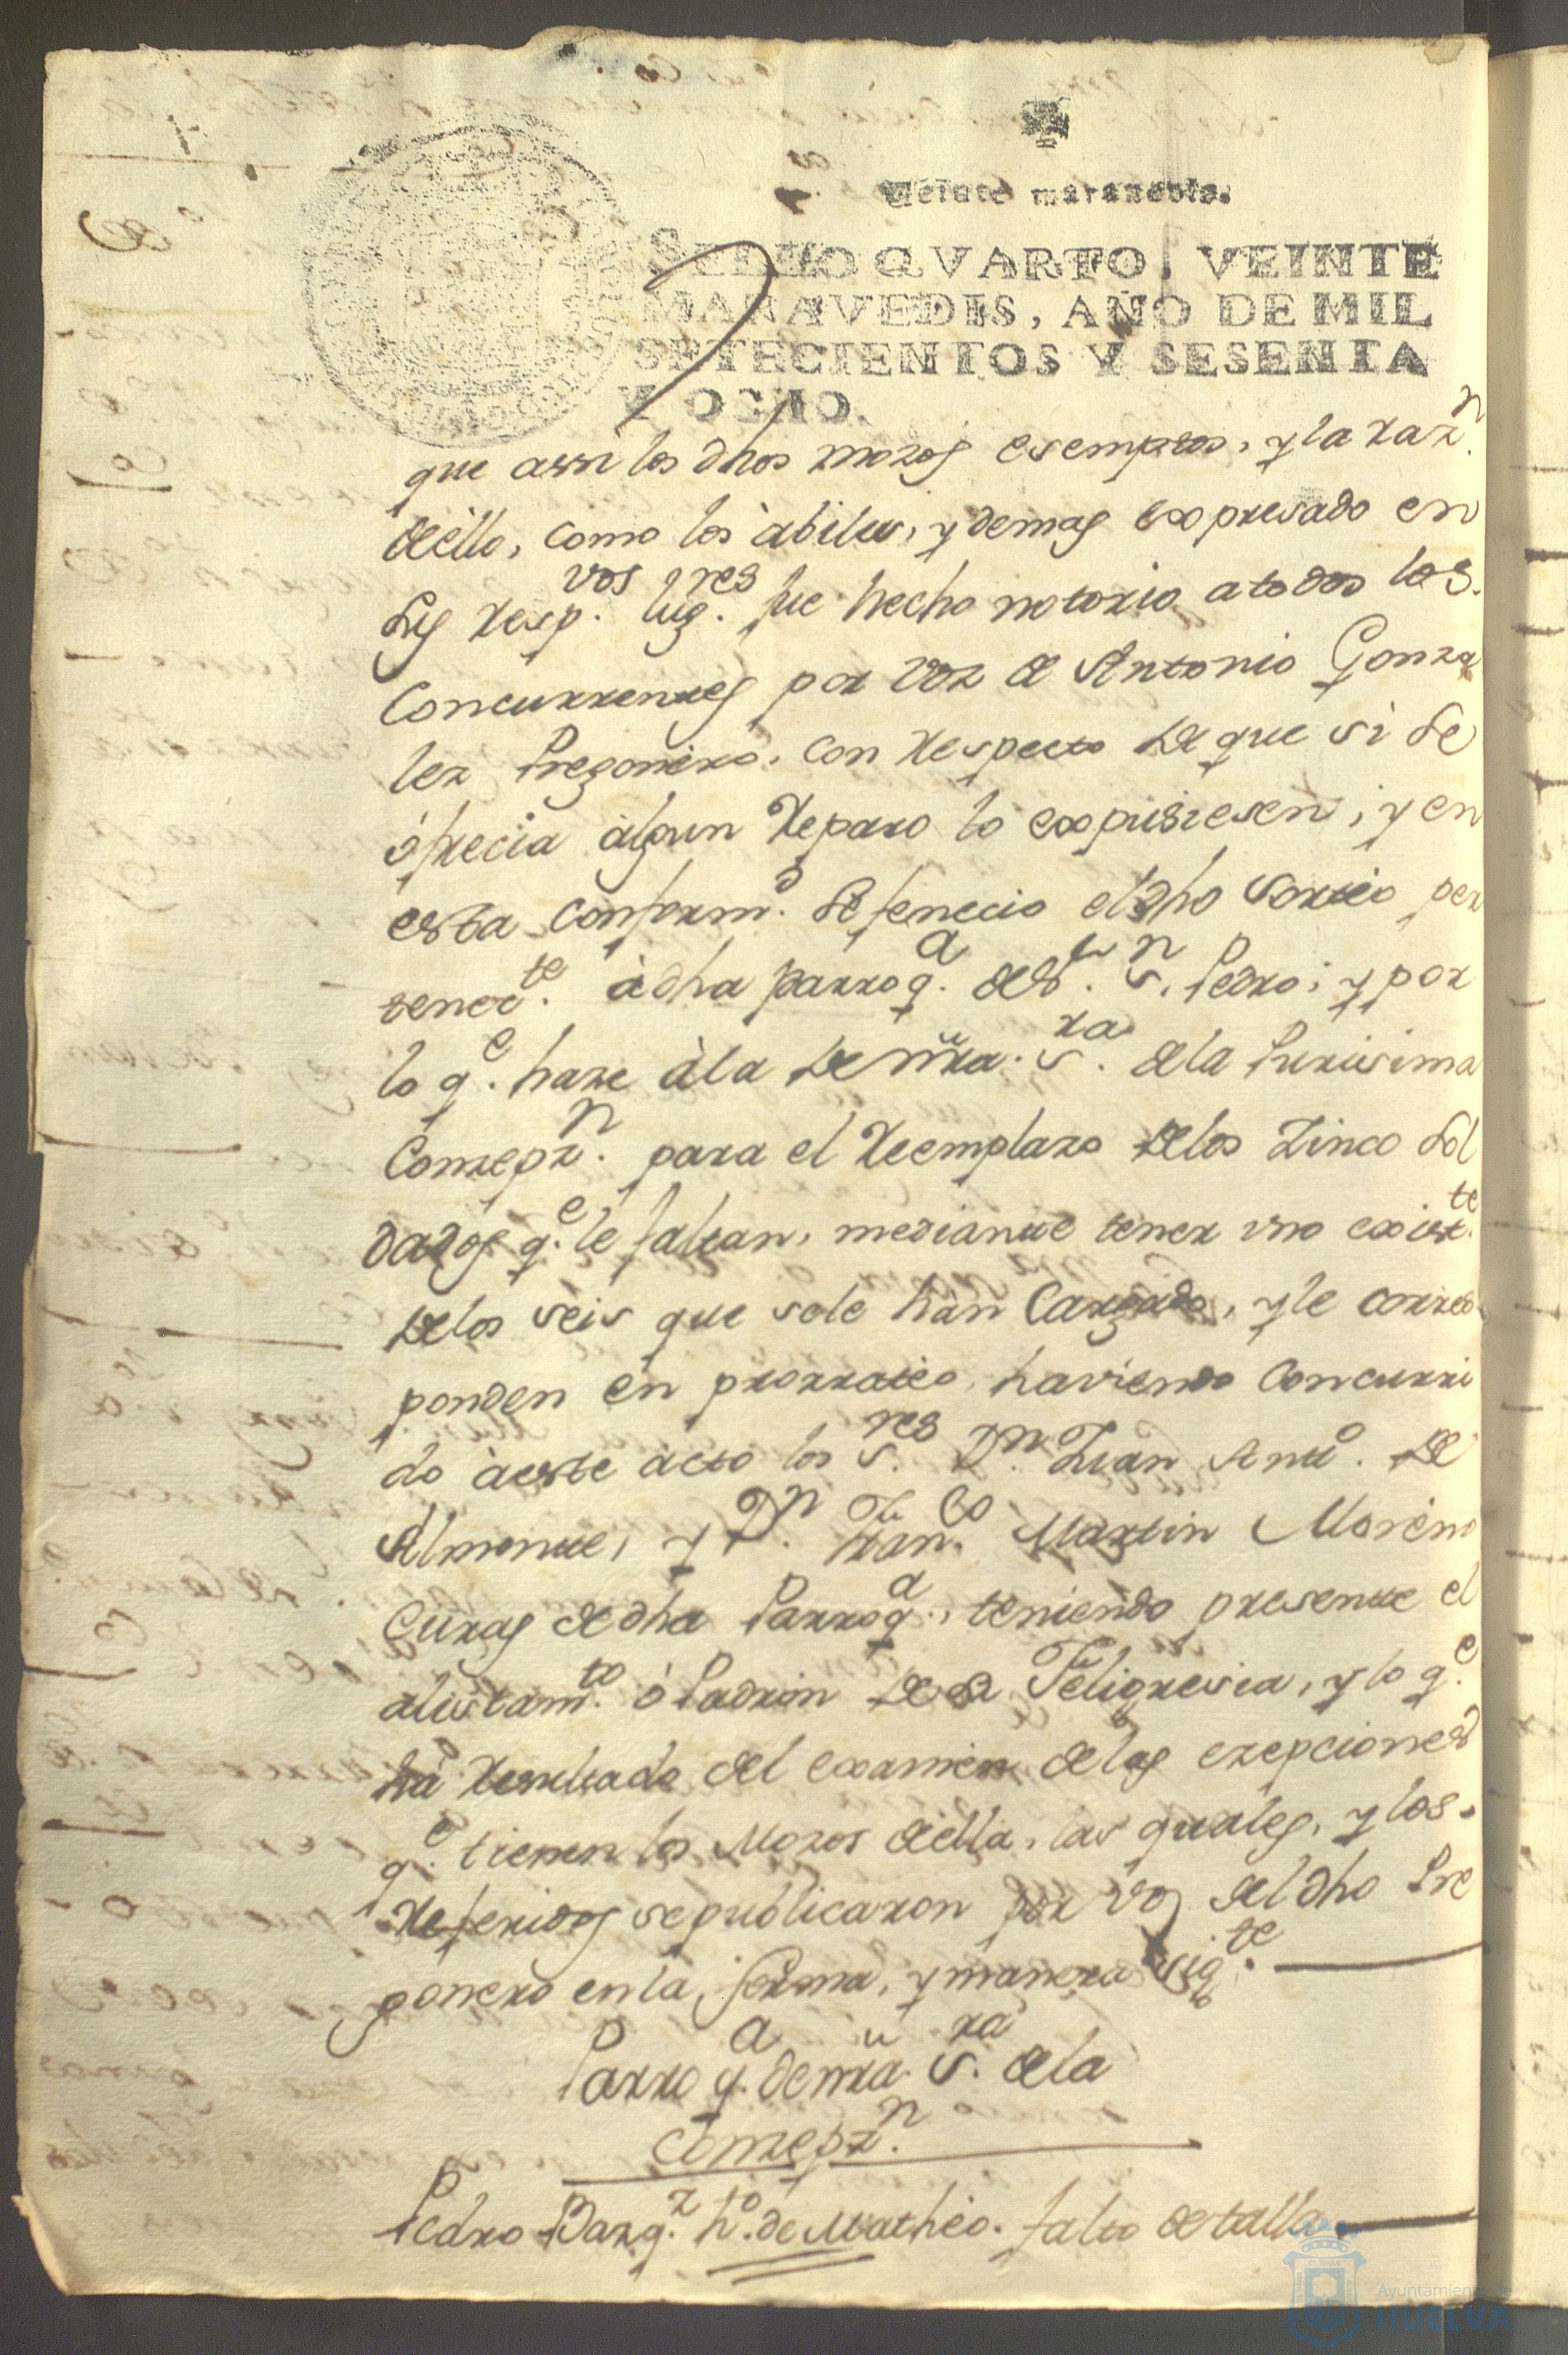 Veinte maravedis.
SELLO QVARTO, VEINTE
MARAVEDIS, AÑO DE MIL
SETECIENTOS Y SESENTA
Y OCHO.
que assi los dhos mozos esemptos, y la razn.
deello, como los àbiles, y demas expresado en
sus respvos. lugres. fue hecho notorio a todos los
Concurrentes por voz de Antonio Gonza
lez Pregonero, con respecto de que si se
ofrecia àlgun reparo lo expusiesen, y en
esta conformd. se fenecio el dho sorteo per
tenecte. à dha Parroqa. de Sn. Pedro; y por
lo qe. haze àla de nra. Sra. de la Purissima
Conzepzn. para el reemplazo de los zinco Sol
dados qe. le faltan, mediante tener uno existte.
de los seis que sele hàn Cargado, y le corres
ponden en prorrateo, haviendo Concurri
do à este àcto los Sres. Dn. Juan Anto. de
Almonte, y Dn. Franco. Martin Moreno
Curas de dha Parroqa., teniendo presente el
alistamto. ò Padron de su Feligresia, y lo qe.
ha resultado del examen de las ezepciones
qe. tienen los Mozos de ella, las quales, y los
referidos se publicaron por voz del dho Pre
gonero en la forma, y manera sigte.
Parroqa. de nra. Sra. de la
Conzepzn.
Pedro Barqz. ho. de Matheo. falto de talla
Ayuntamiento de
HUELVA